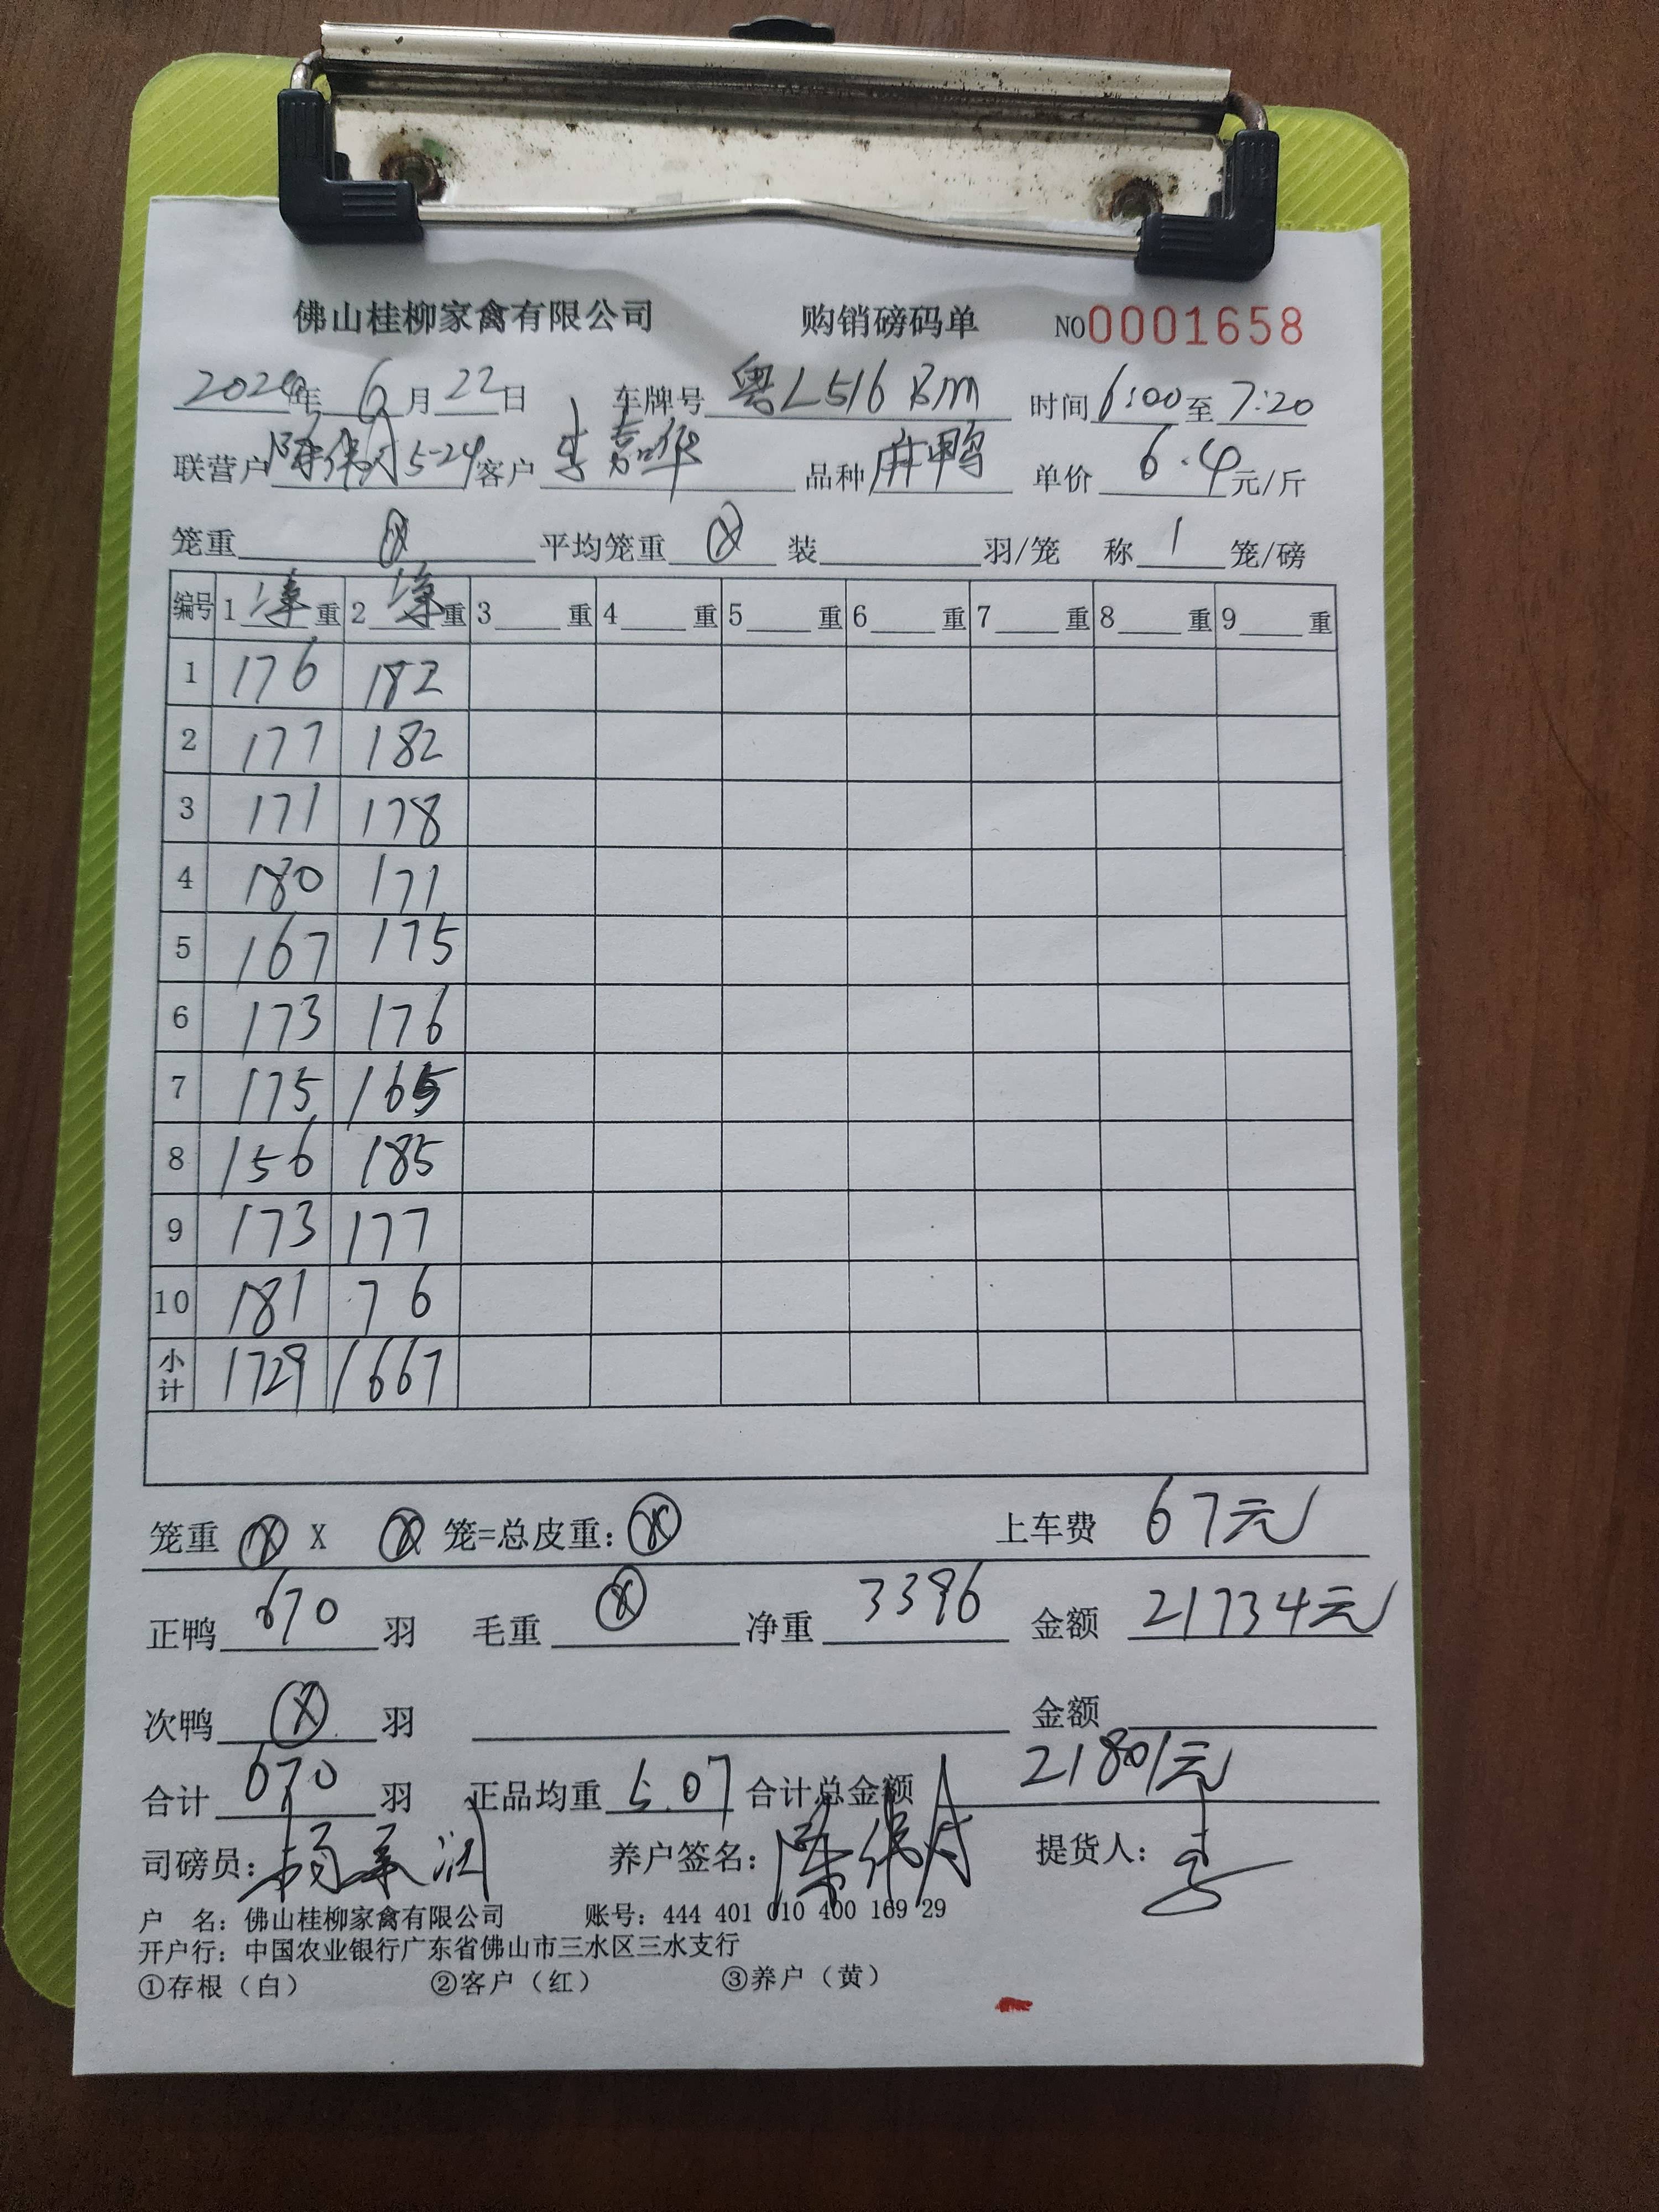 佛山桂柳家禽有限公司 购销磅码单 NO0001658
2024年 6月22日 车牌号 粤L516BM 时间6:00至7:20
联营户 陈伟月5-24 客户 李嘉华 品种 麻鸭 单价 6.4元/斤
笼重 ⊗ 平均笼重 ⊗ 装 羽/笼 称 1 笼/磅
编号 1 净重 2 净重 3 重 4 重 5 重 6 重 7 重 8 重 9 重
1 176 182
2 177 182
3 171 178
4 180 171
5 167 175
6 173 176
7 175 165
8 156 185
9 173 177
10 181 76
小计 1729 1667
笼重 ⊗ X ⊗ 笼=总皮重:⊗ 上车费 67元
正鸭 670 羽 毛重 ⊗ 净重 3396 金额 21734元
次鸭 ⊗ 羽 金额
合计 670 羽 正品均重 5.07 合计总金额 21801元
司磅员: 养户签名:陈伟月 提货人:李
户 名:佛山桂柳家禽有限公司 账号:444 401 010 400 169 29
开户行:中国农业银行广东省佛山市三水区三水支行
①存根（白） ②客户（红） ③养户（黄）